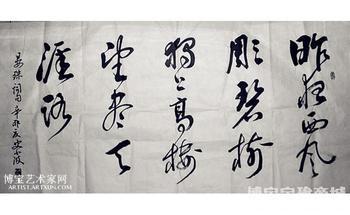 昨夜西风
凋碧树
独上高楼
望尽天
涯路
晏殊词句辛卯夏安波
博宝艺术家网
ARTIST.ARTXUN.COM